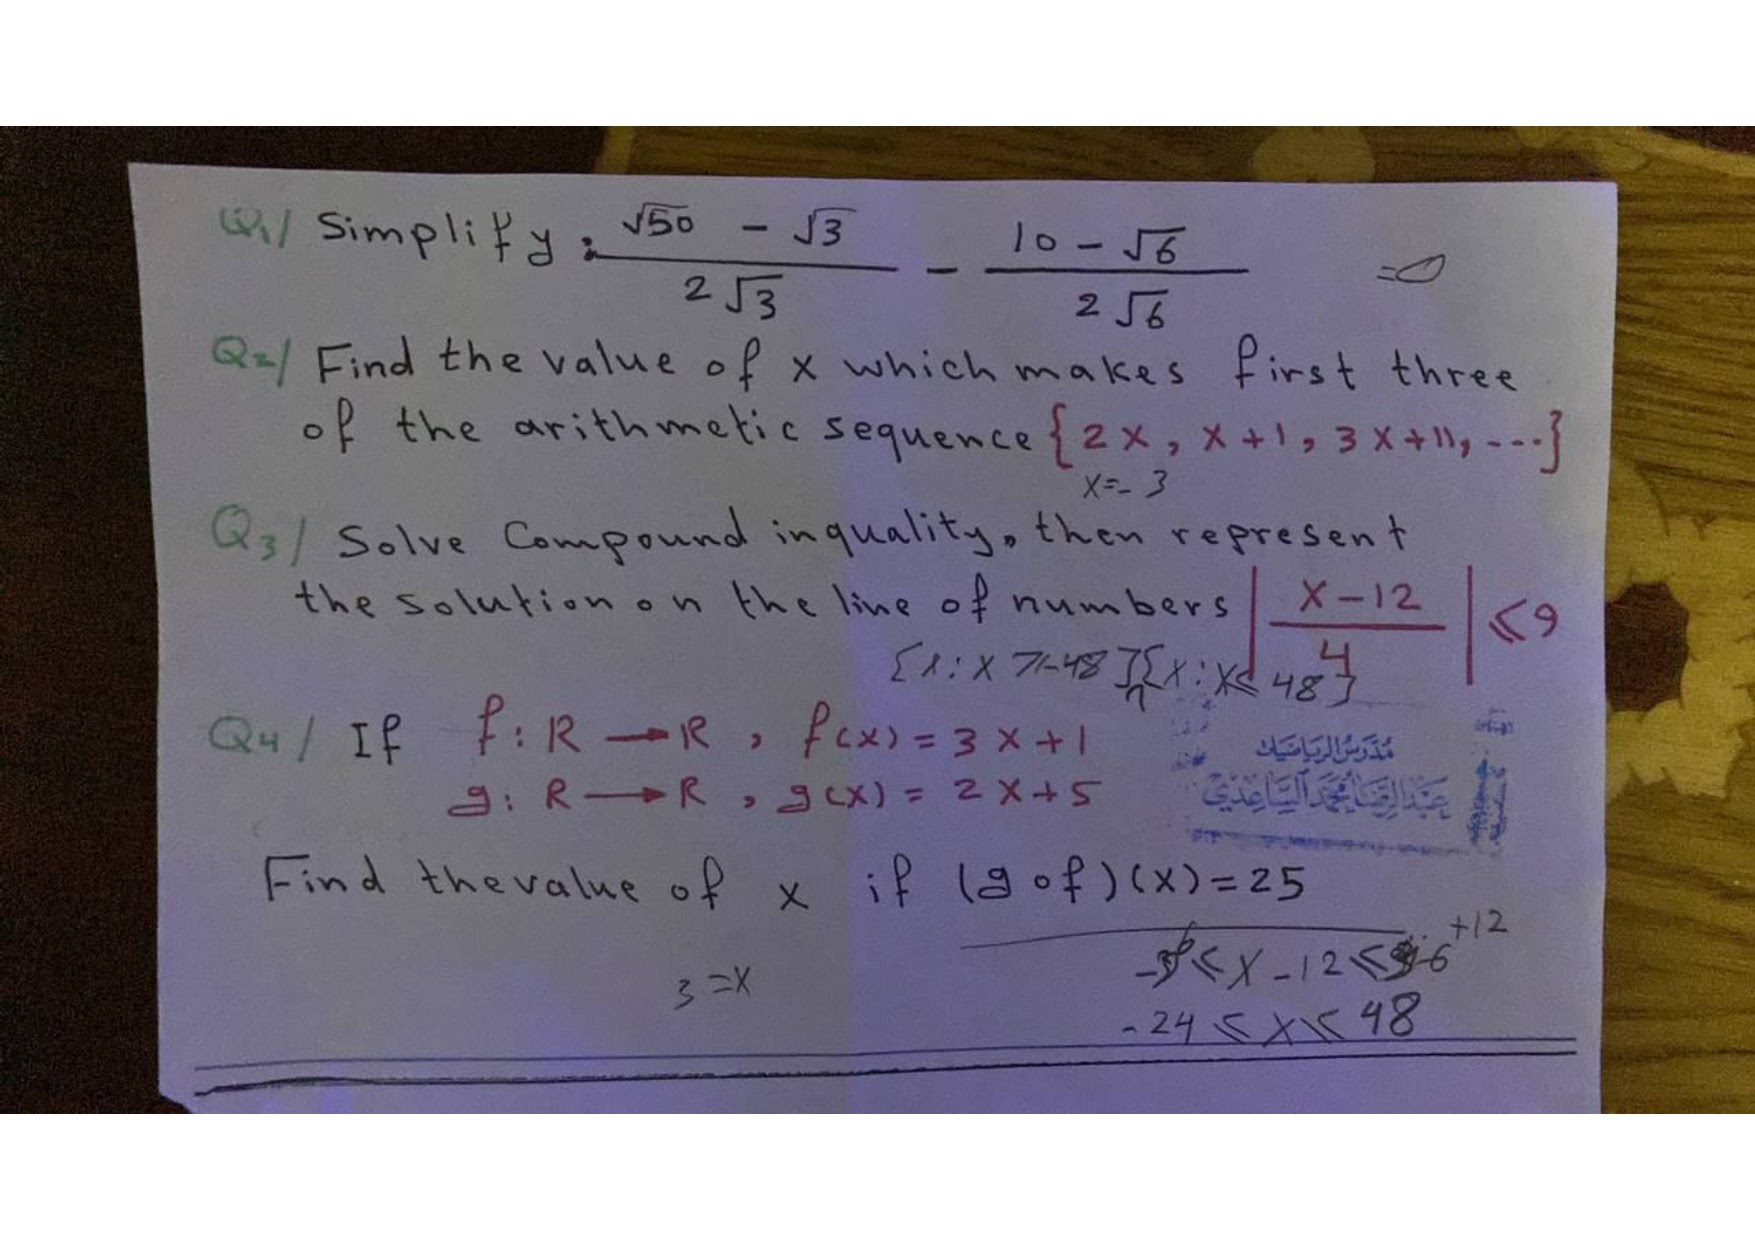 Q1/ Simplify: √50 - √3 / 2√3 - 10 - √6 / 2√6 = 0
Q2/ Find the value of x which makes first three
of the arithmetic sequence {2x, x+1, 3x+11, ....}
x=-3
Q3/ Solve Compound inquality, then represent
the solution on the line of numbers |x-12 / 4| ≤9
{x: x ≥ -48} ∩ {x: x≤ 48}
Q4/ If f: R → R, f(x) = 3x+1
g: R → R, g(x) = 2x+5
مُدَرِّسُ الرِّيَاضِيَات
عَبْدالرِّضَا مُحَمَّد السَّاعِدِيّ
Find the value of x if (gof)(x)=25
≤ x-12 ≤ +12
3=x
-24 ≤ x ≤ 48